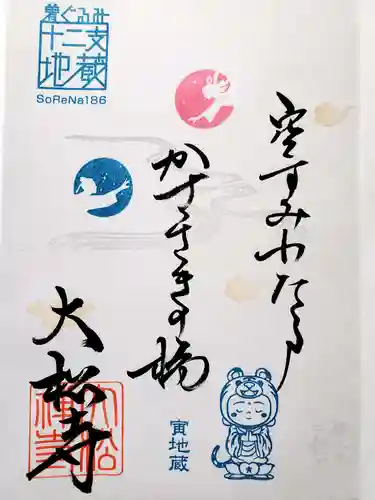 着ぐるみ
十二支
地蔵
SoReNa186
空すみわたる
かささぎの橋
大松寺
寅地蔵